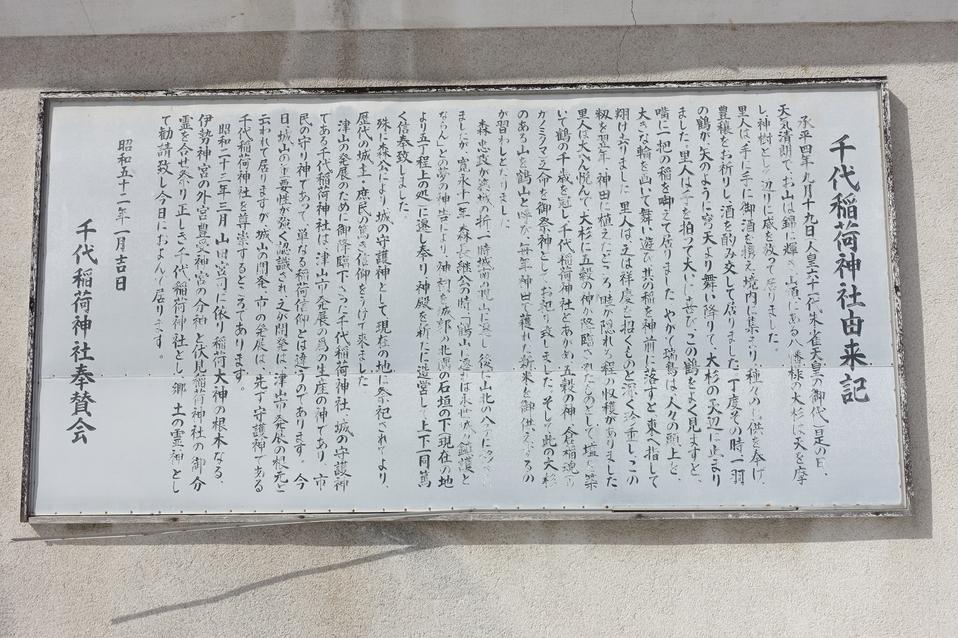 千代稲荷神社由来記
承平四年九月十九日(人皇六十一代朱雀天皇の御代)此の日、
天気清朗で、お山は錦に輝き山頂にある八幡様の大杉は天を摩
し神樹として辺りに威を放って居りました。
里人は手に手に御酒を携え境内に集まり、種々のお供を奉げ、
豊穣をお祈りし、酒を酌み交して居りました。丁度その時一羽
の鶴が、矢のように穹天より舞い降りて、大杉の天辺に止まり
ました。里人は手を拍って大いに喜び、この鶴をよく見ますと、
嘴に一把の稲を啣えて居りました。やがて瑞鶴は人々の頭上を、
大きな輪を画いて舞い遊び、其の稲を神前に落すと東へ指して
翔け去りました。里人は之は祥慶を招くものと深く珍重し、この
籾を翌年、神田に植えたところ畦が隠れる程の収穫がありました
里人は大へん悦んで大杉に五穀の神が降臨されたものとして塩を築
いて鶴の千歳を冠し、千代稲荷神社とあがめ五穀の神(倉稲魂
カノミタマ)之命を御祭神としてお祀り致しました。そして此の大杉
のある山を鶴山と呼び、毎年神田で穫れた新米を御供えするの
が習わしとなりました。
森忠政が築城の折一時城南の
ましたが、寛永十一年、森長継公の時「鶴山に還せば永世城の鎮護と
ならん」との夢の神告により、神祠を城郭の北西の石垣の下(現在の地
より五丁程上の処)に還し奉り神殿を新たに造営して上下一同篤
く信奉致しました。
殊に森公により、城の守護神として現在の地に祭祀されてより、
歴代の城主、庶民の篤き信仰をうけて来ました
津山の発展のために御降臨下さった千代稲荷神社、城の守護神
である千代稲荷神社は、津山市発展の為の生産の神であり、市
民の守り神であって、単なる稲荷信仰とは違うのであります。今
日城山の重要性が強く認識され、之が開発は、津山市発展の根元と
云われて居りますが城山の開発、市の発展は、先ず守護神である
千代稲荷神社を尊崇するところであります。
昭和二十二年三月山田宮司に依り稲荷大神の根本なる、
伊勢神宮の外宮豊受神宮の分神と伏見稲荷神社の御分
霊を合せ祭り正しき千代稲荷神社とし、郷土の霊神とし
て勧請致し今日におよんで居ります。
昭和五十一年一月吉日
千代稲荷神社奉賛会